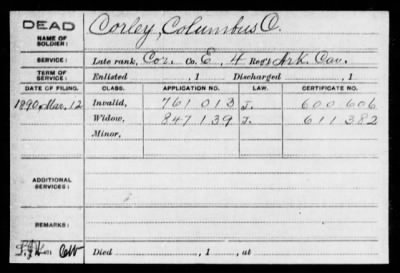 DEAD
NAME OF SOLDIER: Corley, Columbus C.
SERVICE: Late rank, Cor. Co. E, 4 Reg't Ark. Cav.
TERM OF SERVICE: Enlisted , 1 Discharged , 1
DATE OF FILING. CLASS. APPLICATION NO. LAW. CERTIFICATE NO.
1890, Mar. 12 Invalid, 761 013 J. 600 606
Widow, 847 139 J. 611 382
Minor,
ADDITIONAL SERVICES:
REMARKS:
Died , 1 , at